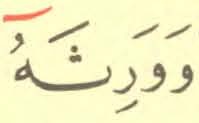 وَوَرِثَهُ